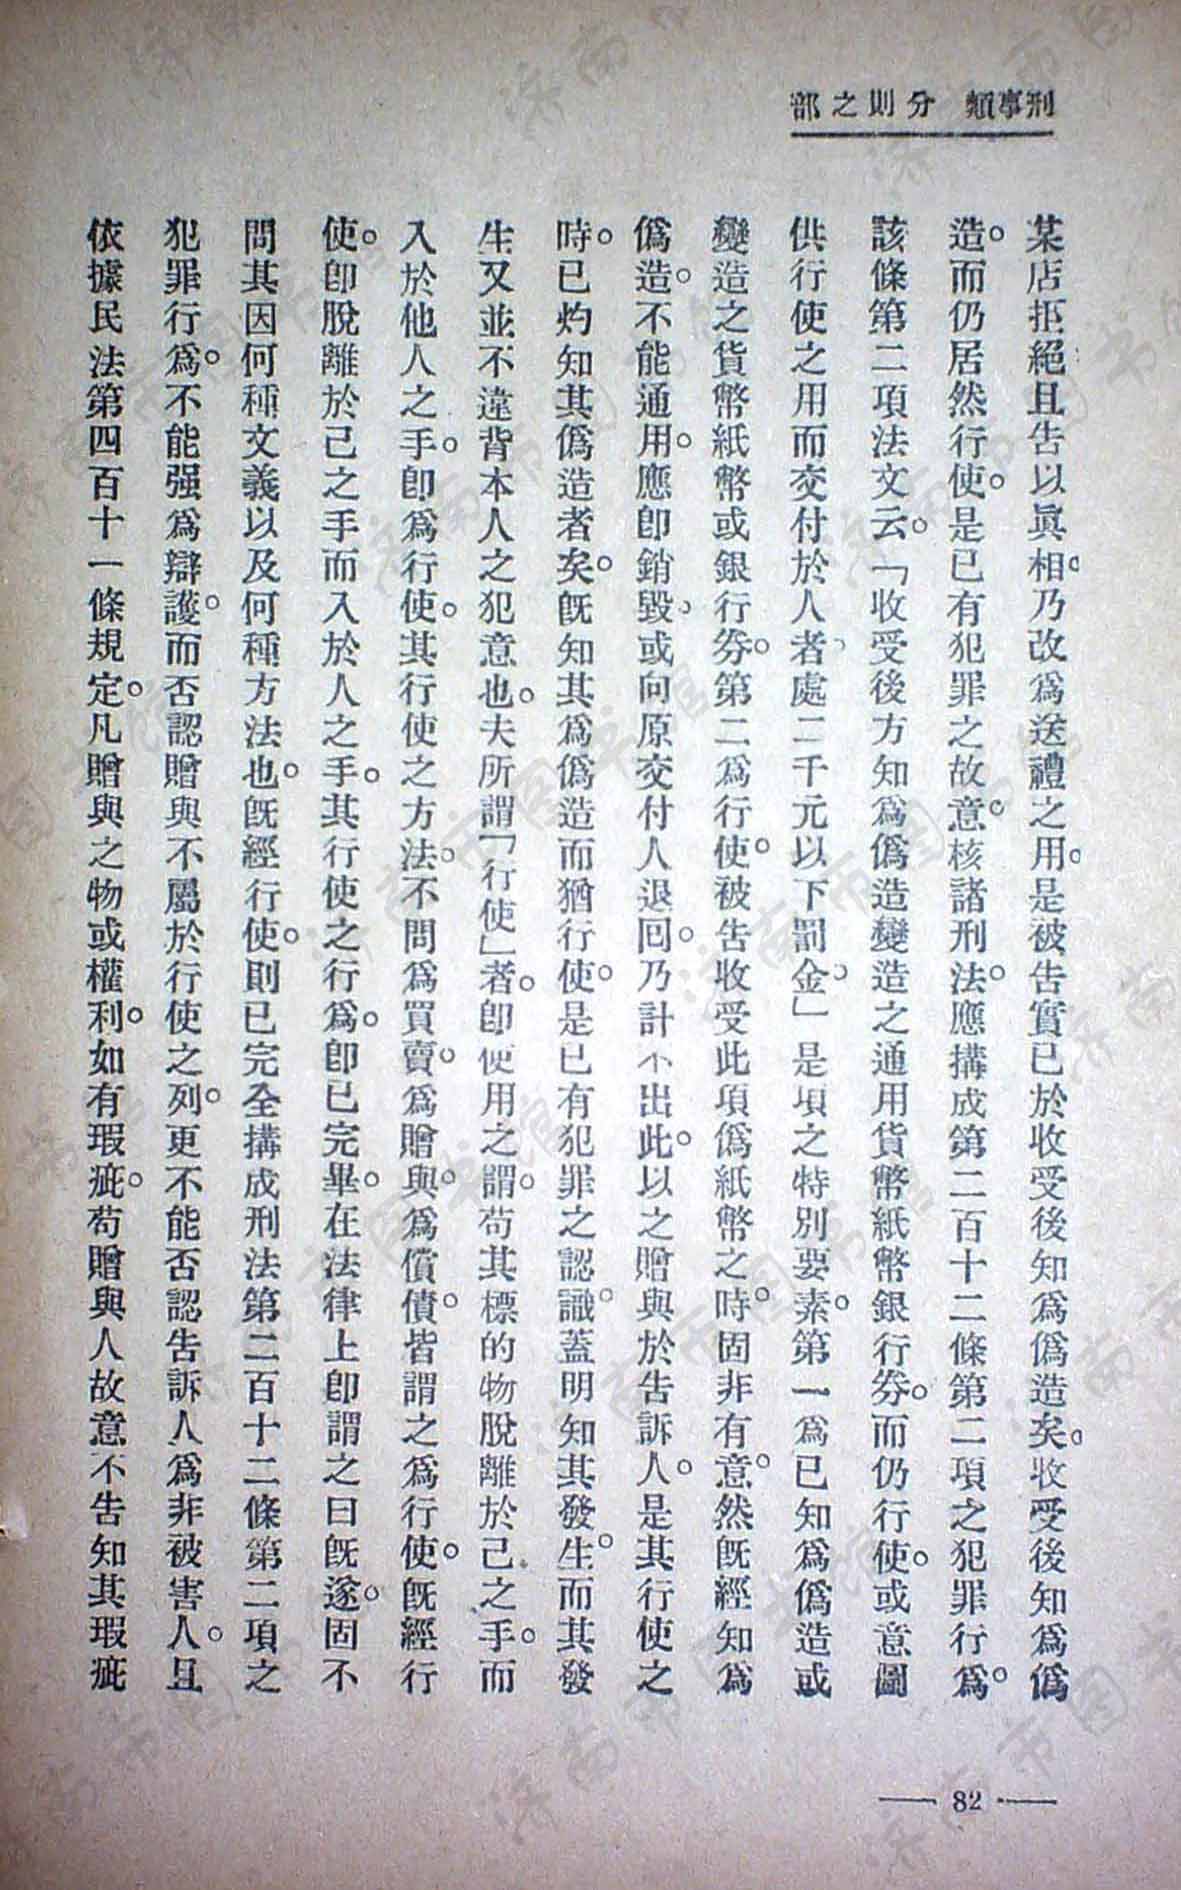 刑事類　分則之部
某店拒絕且告以眞相。乃改爲送禮之用。是被告實已於收受後知爲僞造矣。收受後知爲僞
造。而仍居然行使。是已有犯罪之故意。核諸刑法。應搆成第二百十二條第二項之犯罪行爲。
該條第二項法文云。「收受後方知爲僞造變造之通用貨幣紙幣銀行券。而仍行使。或意圖
供行使之用而交付於人者、處二千元以下罰金。」是項之特別要素。第一爲已知爲僞造或
變造之貨幣紙幣或銀行券。第二爲行使。被告收受此項僞紙幣之時。固非有意。然旣經知爲
僞造。不能通用。應卽銷毀、或向原交付人退回。乃計不出此。以之贈與於告訴人。是其行使之
時。已灼知其僞造者矣。旣知其爲僞造而猶行使。是已有犯罪之認識。蓋明知其發生。而其發
生又並不違背本人之犯意也。夫所謂「行使」者。卽使用之謂。苟其標的物脫離於己之手。而
入於他人之手。卽爲行使。其行使之方法。不問爲買賣。爲贈與。爲償債。皆謂之爲行使。旣經行
使。卽脫離於己之手而入於人之手。其行使之行爲。卽已完畢。在法律上卽謂之曰旣遂。固不
問其因何種文義以及何種方法也。旣經行使。則已完全搆成刑法第二百十二條第二項之
犯罪行爲。不能强爲辯護。而否認贈與不屬於行使之列。更不能否認告訴人爲非被害人。且
依據民法第四百十一條規定。凡贈與之物或權利。如有瑕疵。苟贈與人故意不告知其瑕疵
— 82 —